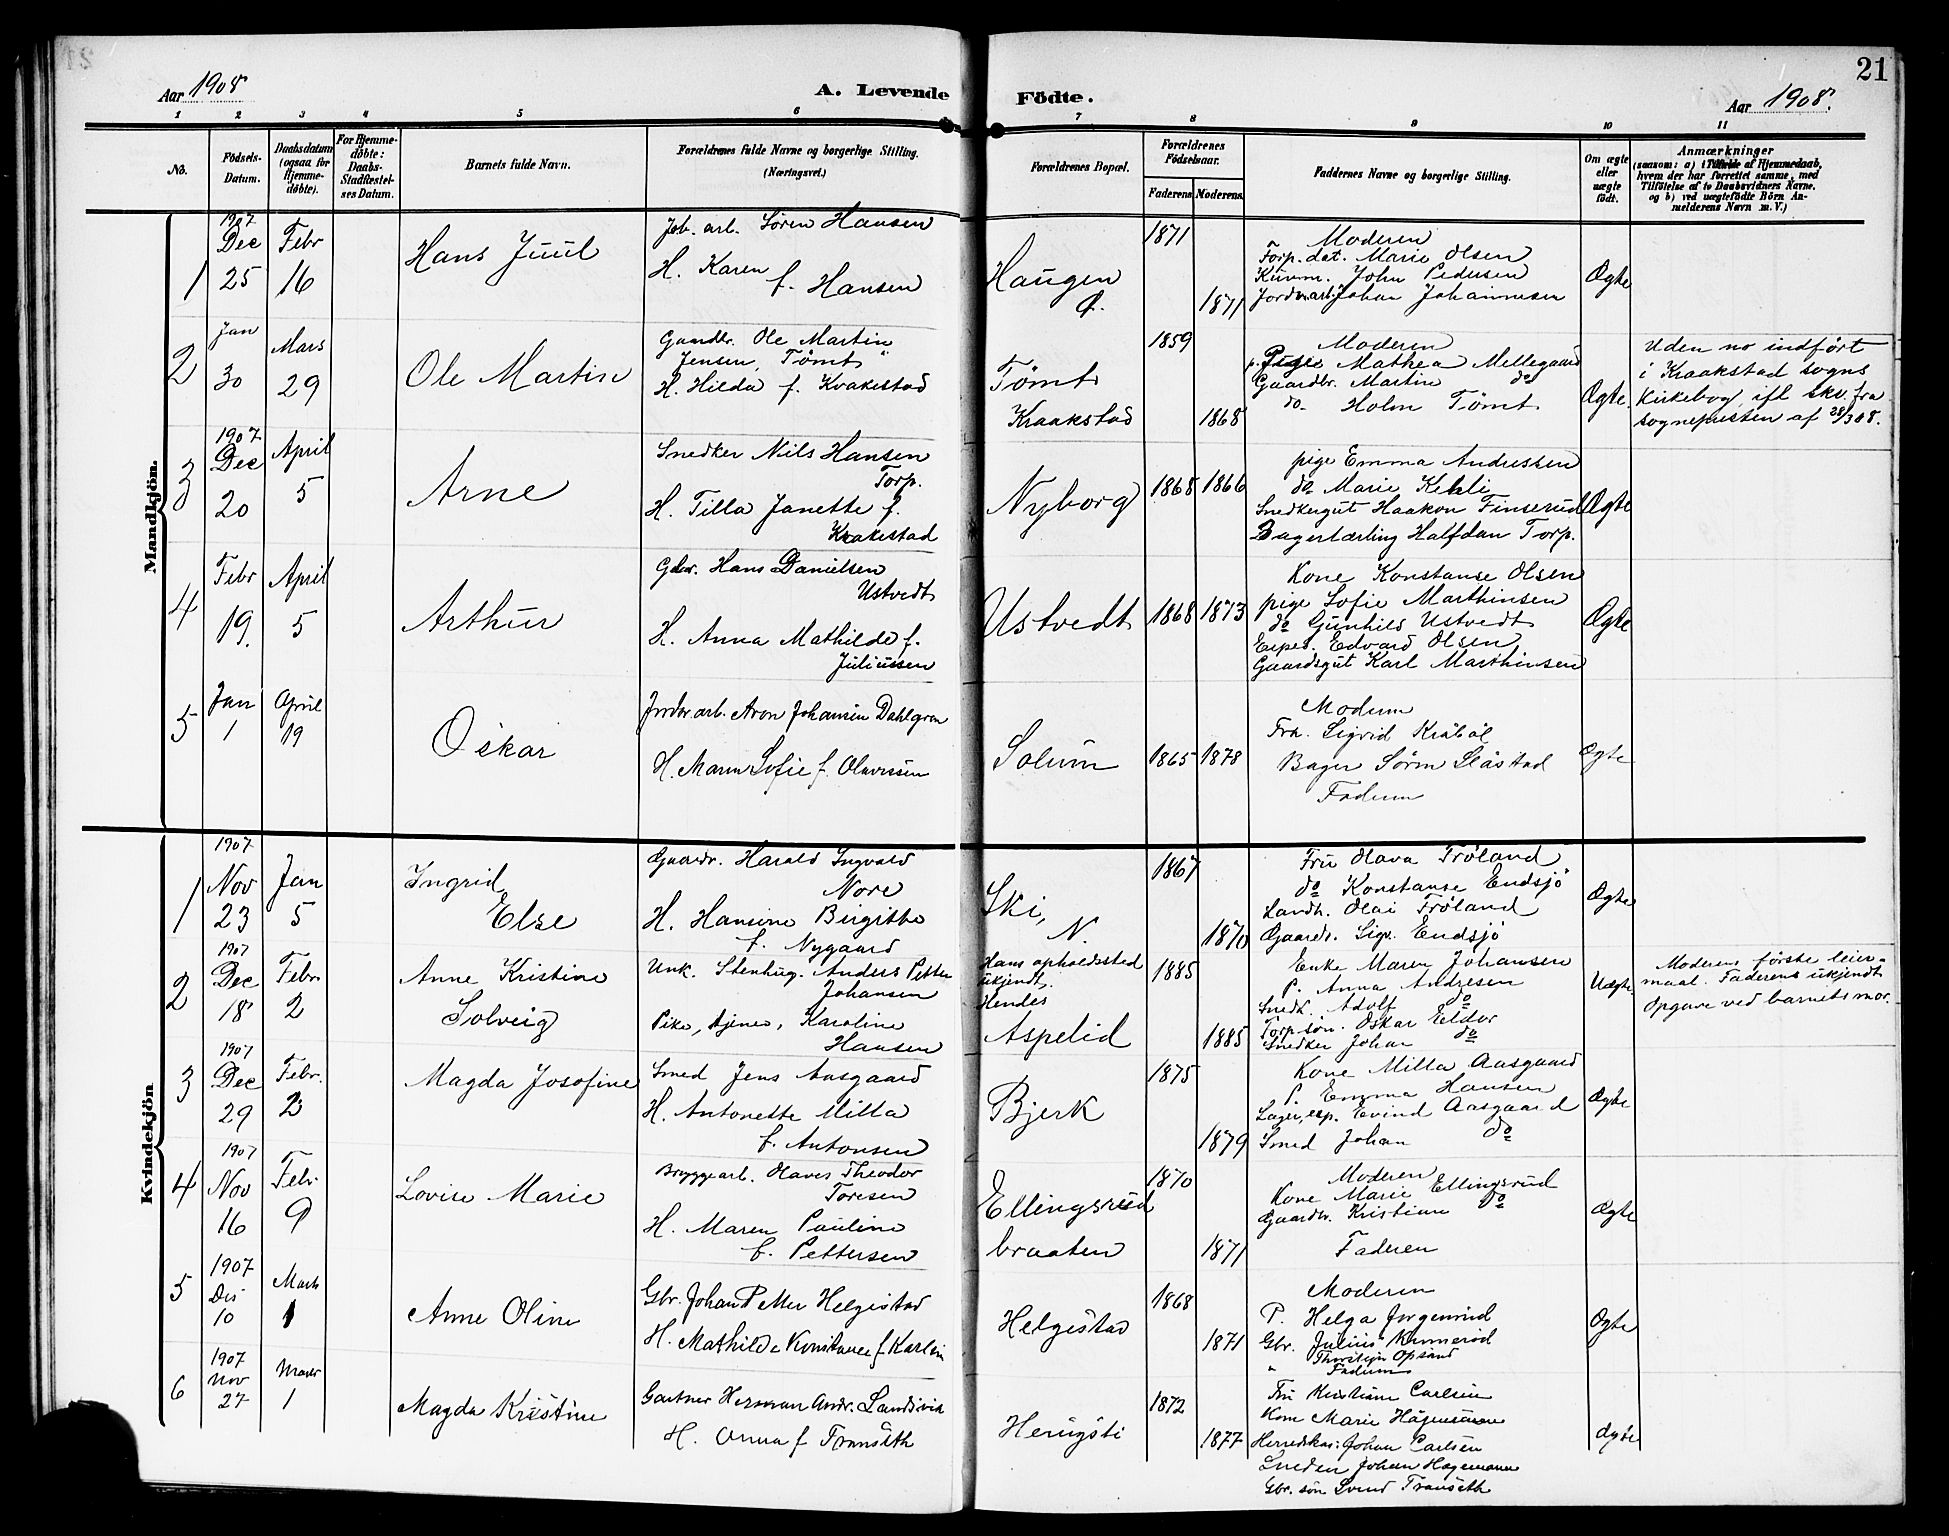 21
Aar 1908
A. Levende Födte.
Aar 1908.
1 2 3 4 5 6 7 8 9 10 11
No.
Födsels-Datum.
Daabsdatum (ogsaa for Hjemme-döbte).
For Hjemme-döbte: Daabs-Stadfæstel-ses Datum.
Barnets fulde Navn.
Forældrenes fulde Navne og borgerlige Stilling. (Næringsvei.)
Forældrenes Bopæl.
Forældrenes Födselsaar.
Faderens Moderens
Faddernes Navne og borgerlige Stilling.
Om ægte eller uægte födt.
Anmærkninger
(saasom: a) i Tilfælde af Hjemmedaab,
hvem der har forrettet samme, med
Tilföielse af to Daabsvidners Navne,
og b) ved uægtefödte Börn An-
melderens Navn m. V.)
Mandkjön.
1
1907
Dec
25
Febr
16
Hans Juul
Job. arb. Sören Hansen
H. Karen
f. Hansen
Haugen
1871
1871
Moderen
Torp. dat. Marie Olsen
John Pedersen
Jordv.arb. Johan Johannesen
Ægte
2
Jan
30
Mars
29
Ole Martin
Gaardbr. Ole Martin
Jensen, Tömt
H. Hilda f. Kvakestad
Tömt
Kraakstad
1859
1868
Moderen
p. Pige Mathea Mellegaard
Gaardbr. Martin do
do Holm Tömt
Ægte.
Uden no indfört
i Kraakstad sogns
Kirkebog ifl skv. fra
sognepresten af 28/3 08.
3
1907
Dec
20
April
5
Arne
Snedker Nils Hansen
Torp.
H. Tilla Janette f.
Krakestad
Nyborg
1868 1866
pige Emma Andressen
do Marie Kehli
Snedkergut Haakon Finserud
Bagerlærling Halfdan Torp.
Ægte
4
Febr
19.
April
5
Arthur
Gbr. Hans Danielsen
Ustvedt
H. Anna Mathilde f.
Juliussen
Ustvedt
1868 1873
Kone Konstanse Olsen
pige Sofie Marthinsen
do Gunhild Ustvedt
Exped. Edvard Olsen
Gaardsgut Karl Marthinsen
Ægte
5
Jan
1
April
19
Oskar
Jordv. arb. Aron Johansen Dahlgren
H. Maren Sofie f. Olavessen
Solum
1865 1878
Moderen
Frk. Sigrid Kråböl
Bager Sören Slåstad
Faderen
Ægte
Kvindekjön
1
1907
Nov
23
Jan
5
Ingrid
Else
Gaardr. Harald Ingvald
Nore
H. Hansine Birgitte
f. Nygaard
Ski,
N.
1867
1870
Fru Olava Tröland
do Konstanse Endsjö
Landh. Olai Tröland
Gaardr. Sigv. Endsjö
Ægte
2
1907
Dec
18
Febr
2
Anne Kristine
Solveig
Unk. Stenhug. Anders Petter
Johansen
Pike, tjener, Karoline
Hansen
Hans opholdssted
ukjendt.
Hendes
Aspelid
1885
1885
Enke Maren Johansen
P. Anna Andresen
Snedk. Adolf do
Torpsön. Oskar Eldor
Snedker Johan do
Uægte.
Moderens förste leier-
maal. Faderens ukjendt
Opgave ved barnets mor.
3
1907
Dec
29
Febr.
2
Magda Josofine
Smed Jens Aasgaard
H. Antonette Milla
f. Antonsen
Bjerk
1875
1879
Kone Milla Aasgaard
P. Emma Hansen
Lager, exp. Evind Aasgaard
Smed Johan do
Ægte
4
1907
Nov
16
Febr
9
Lovise Marie
Bryggearb. Olaves Theodor
Toresen
H. Maren Pauline
f. Pettersen
Ellingsrud
braaten
1870
1871
Moderen
Kone Marie Ellingsrud
Gaardbr. Kristian do
Faderen
Ægte
5
1907
Des
10
Marts
1
Anne Oline
Gbr. Johan Petter Helgestad
H. Mathilde Konstance f. Karlsen
Helgestad
1868
1871
Moderen
P. Helga Jörgenrud
Gbr. Julius Kunnerod
" Thorstejn Opsand
" Faderen
Ægte
6
1907
Nov
27
Marts
1
Magda Kristine
Gartner Herman Andr. Landsvik
H. Anna f. Transeth
1872
1877
Fru Kristiane Carlsen
Kone Marie Hagemann
Herredskas: Johan Carlsen
Johan Hagemann
Gbr. sön Svend Transeth
Ægte